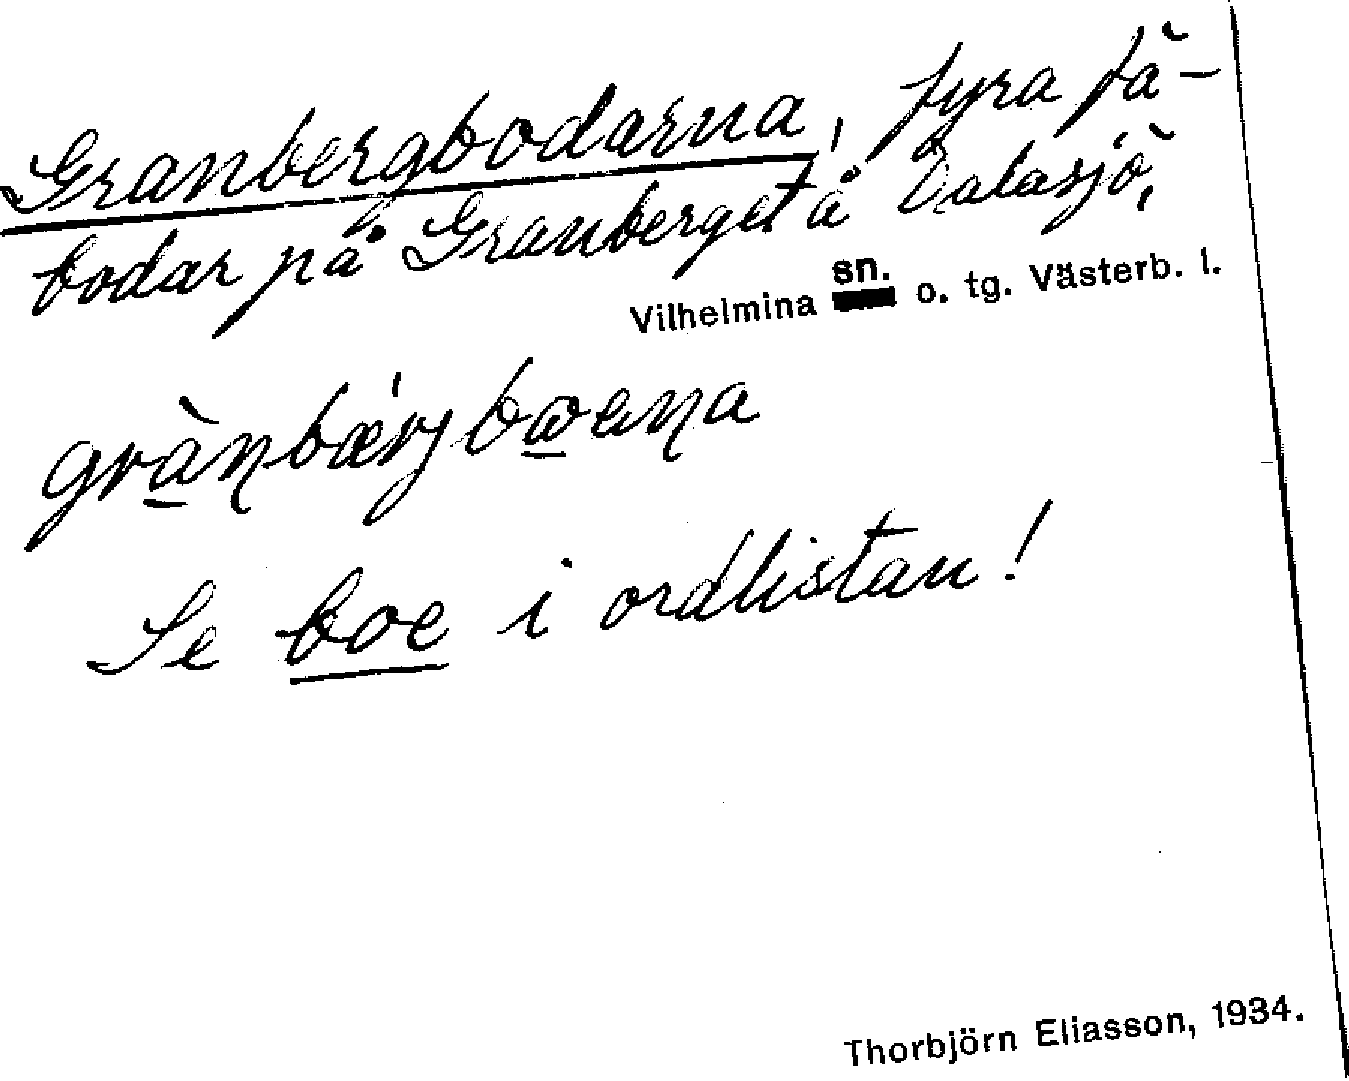 Granbergbodarna, fyra fä-
bodar på Granberget å Dalasjö,
Vilhelmina sn. o. tg. Västerb. l.
grànbærjboena
Se boe i ordlistan!
Thorbjörn Eliasson, 1934.